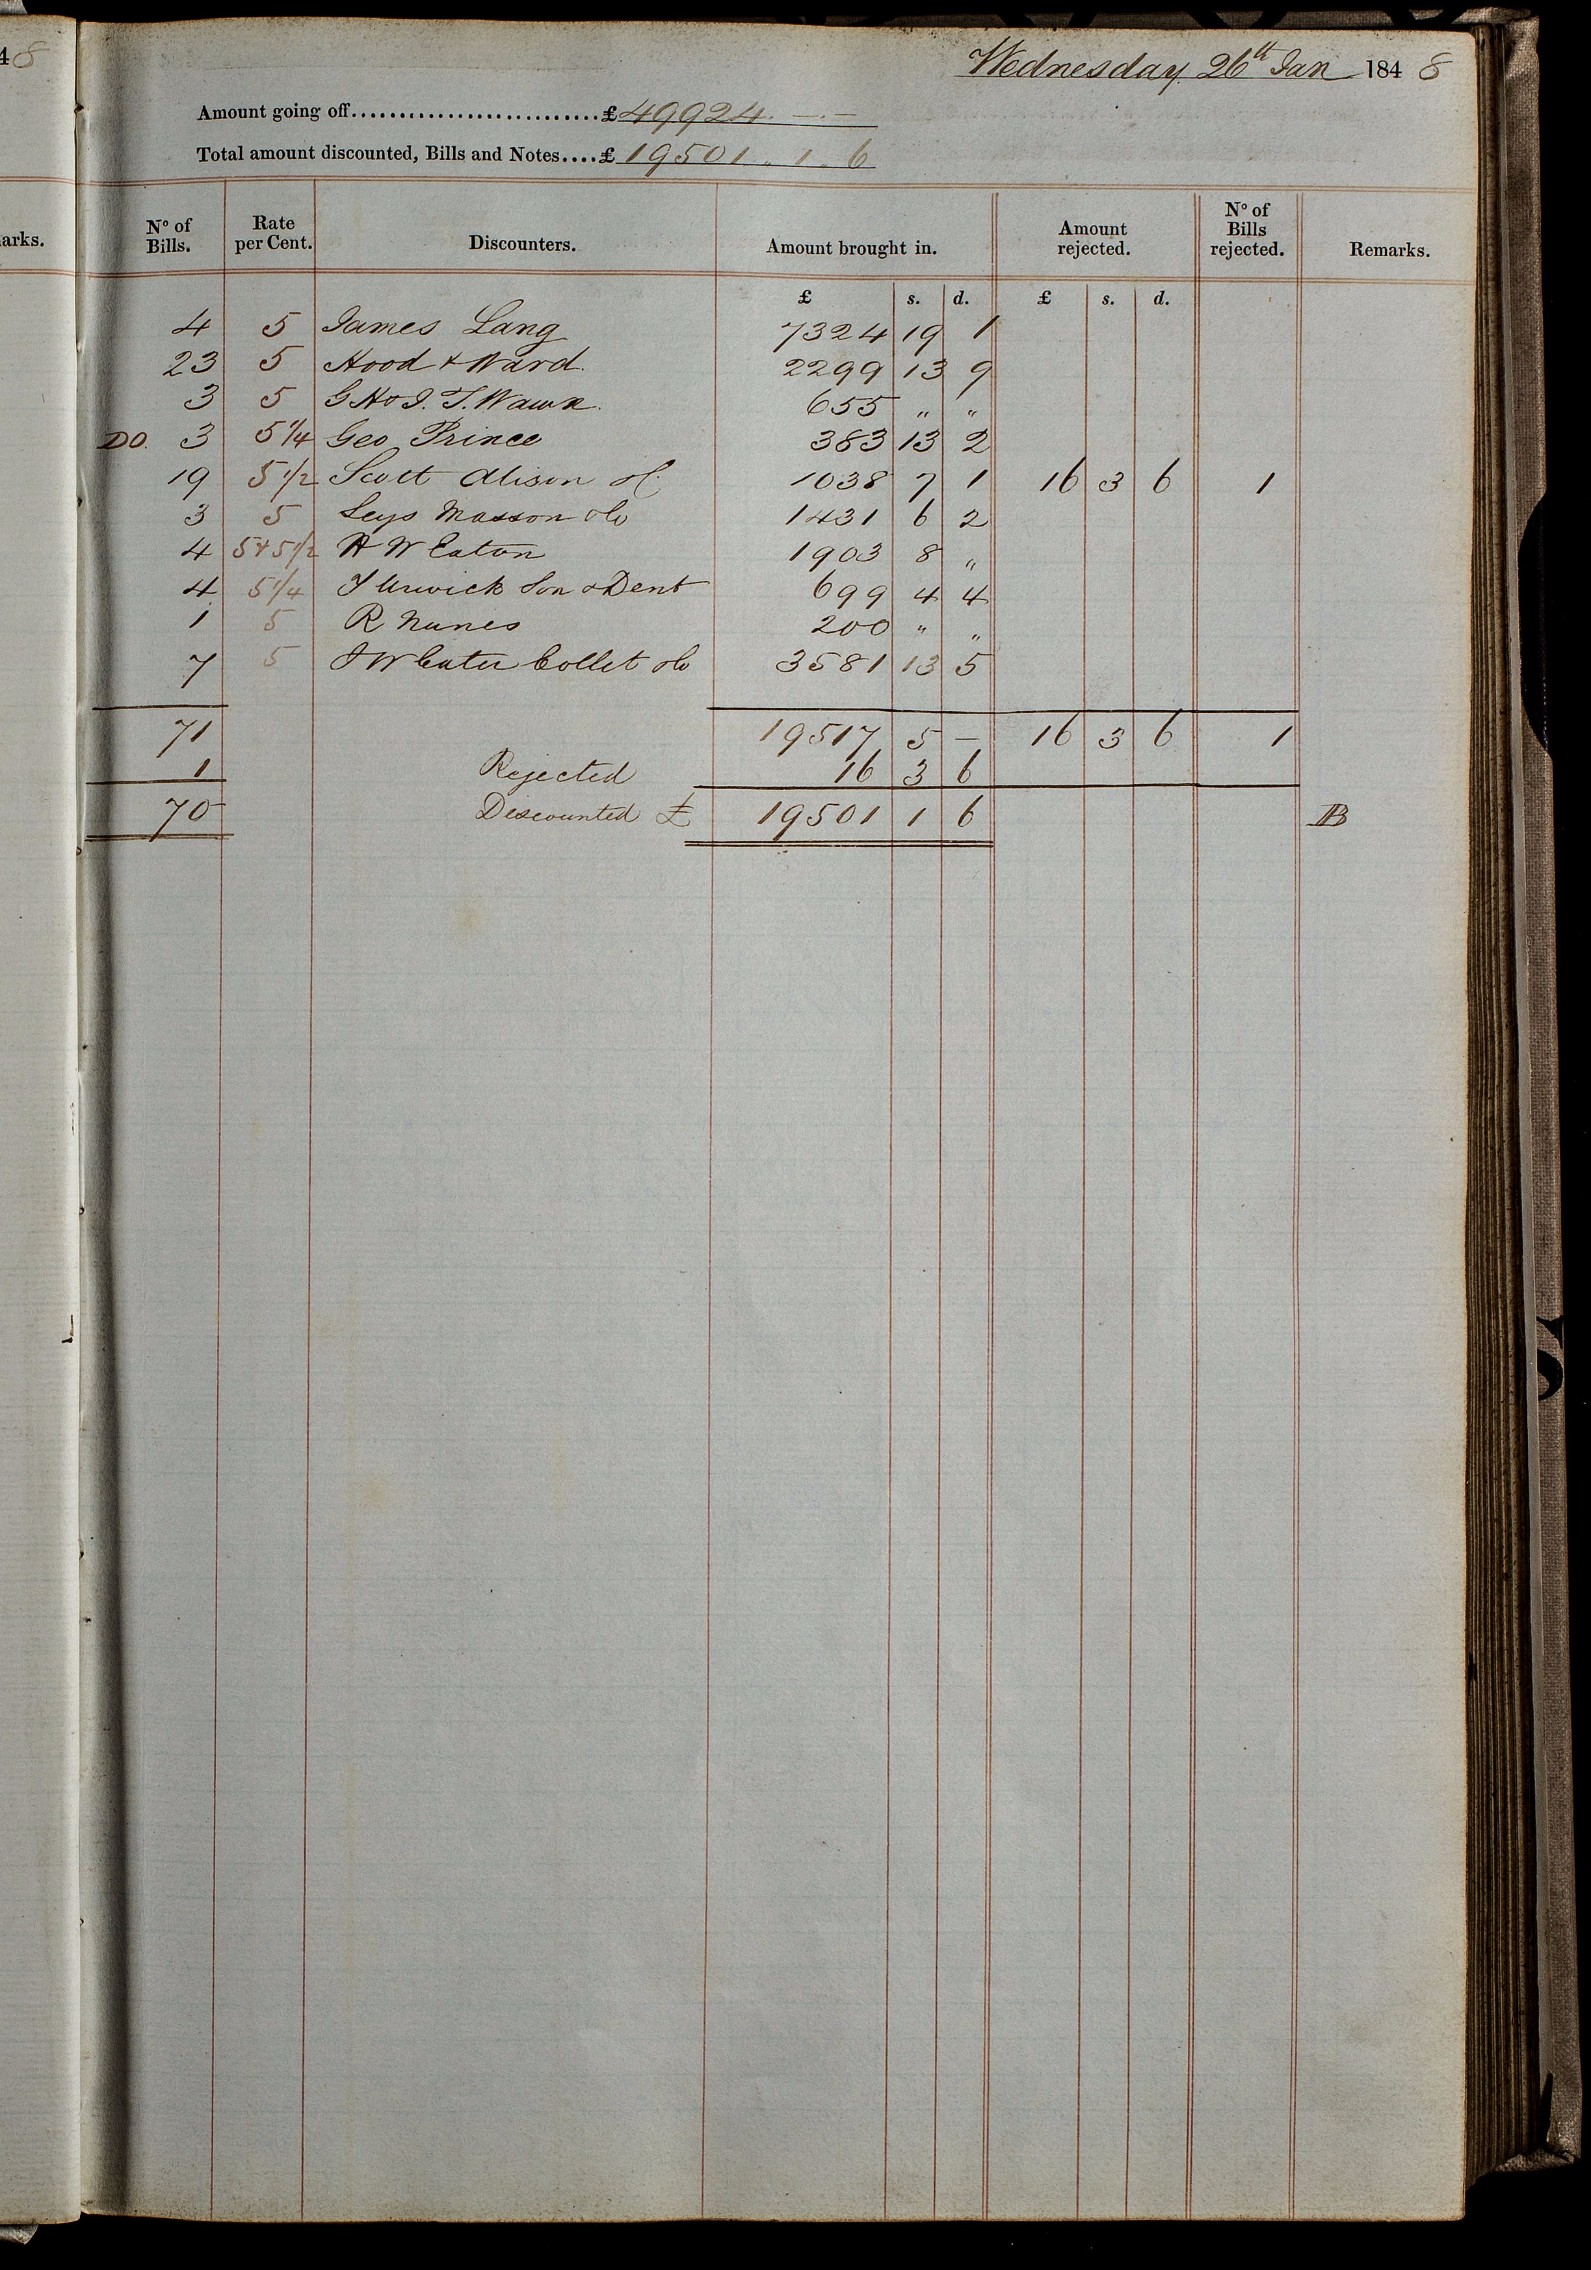 48
arks.
Wednesday 26th Jan 1848
Amount going off........................... £ 49924 . — . —
Total amount discounted, Bills and Notes.... £ 19501 .. 1 .. 6
No of Bills. Rate per Cent. Discounters. Amount brought in. Amount rejected. No of Bills rejected. Remarks.
£ s. d. £ s. d.
4 5 James Lang 7324 19 1
23 5 Hood & Ward 2299 13 9
3 5 G H & J. T. Wawn 655 " "
DO. 3 5 1/4 Geo Prince 383 13 2
19 5 1/2 Scott Alison & C 1038 7 1 16 3 6 1
3 5 Leys Masson & Co 1431 6 2
4 5 & 5 1/2 H W Eaton 1903 8 "
4 5 1/4 T Urwick Son & Dent 699 4 4
1 5 R Nunes 200 " "
7 5 J W Cater Collet & Co 3581 13 5
71 19517 5 — 16 3 6 1
1 Rejected 16 3 6
70 Discounted £ 19501 1 6